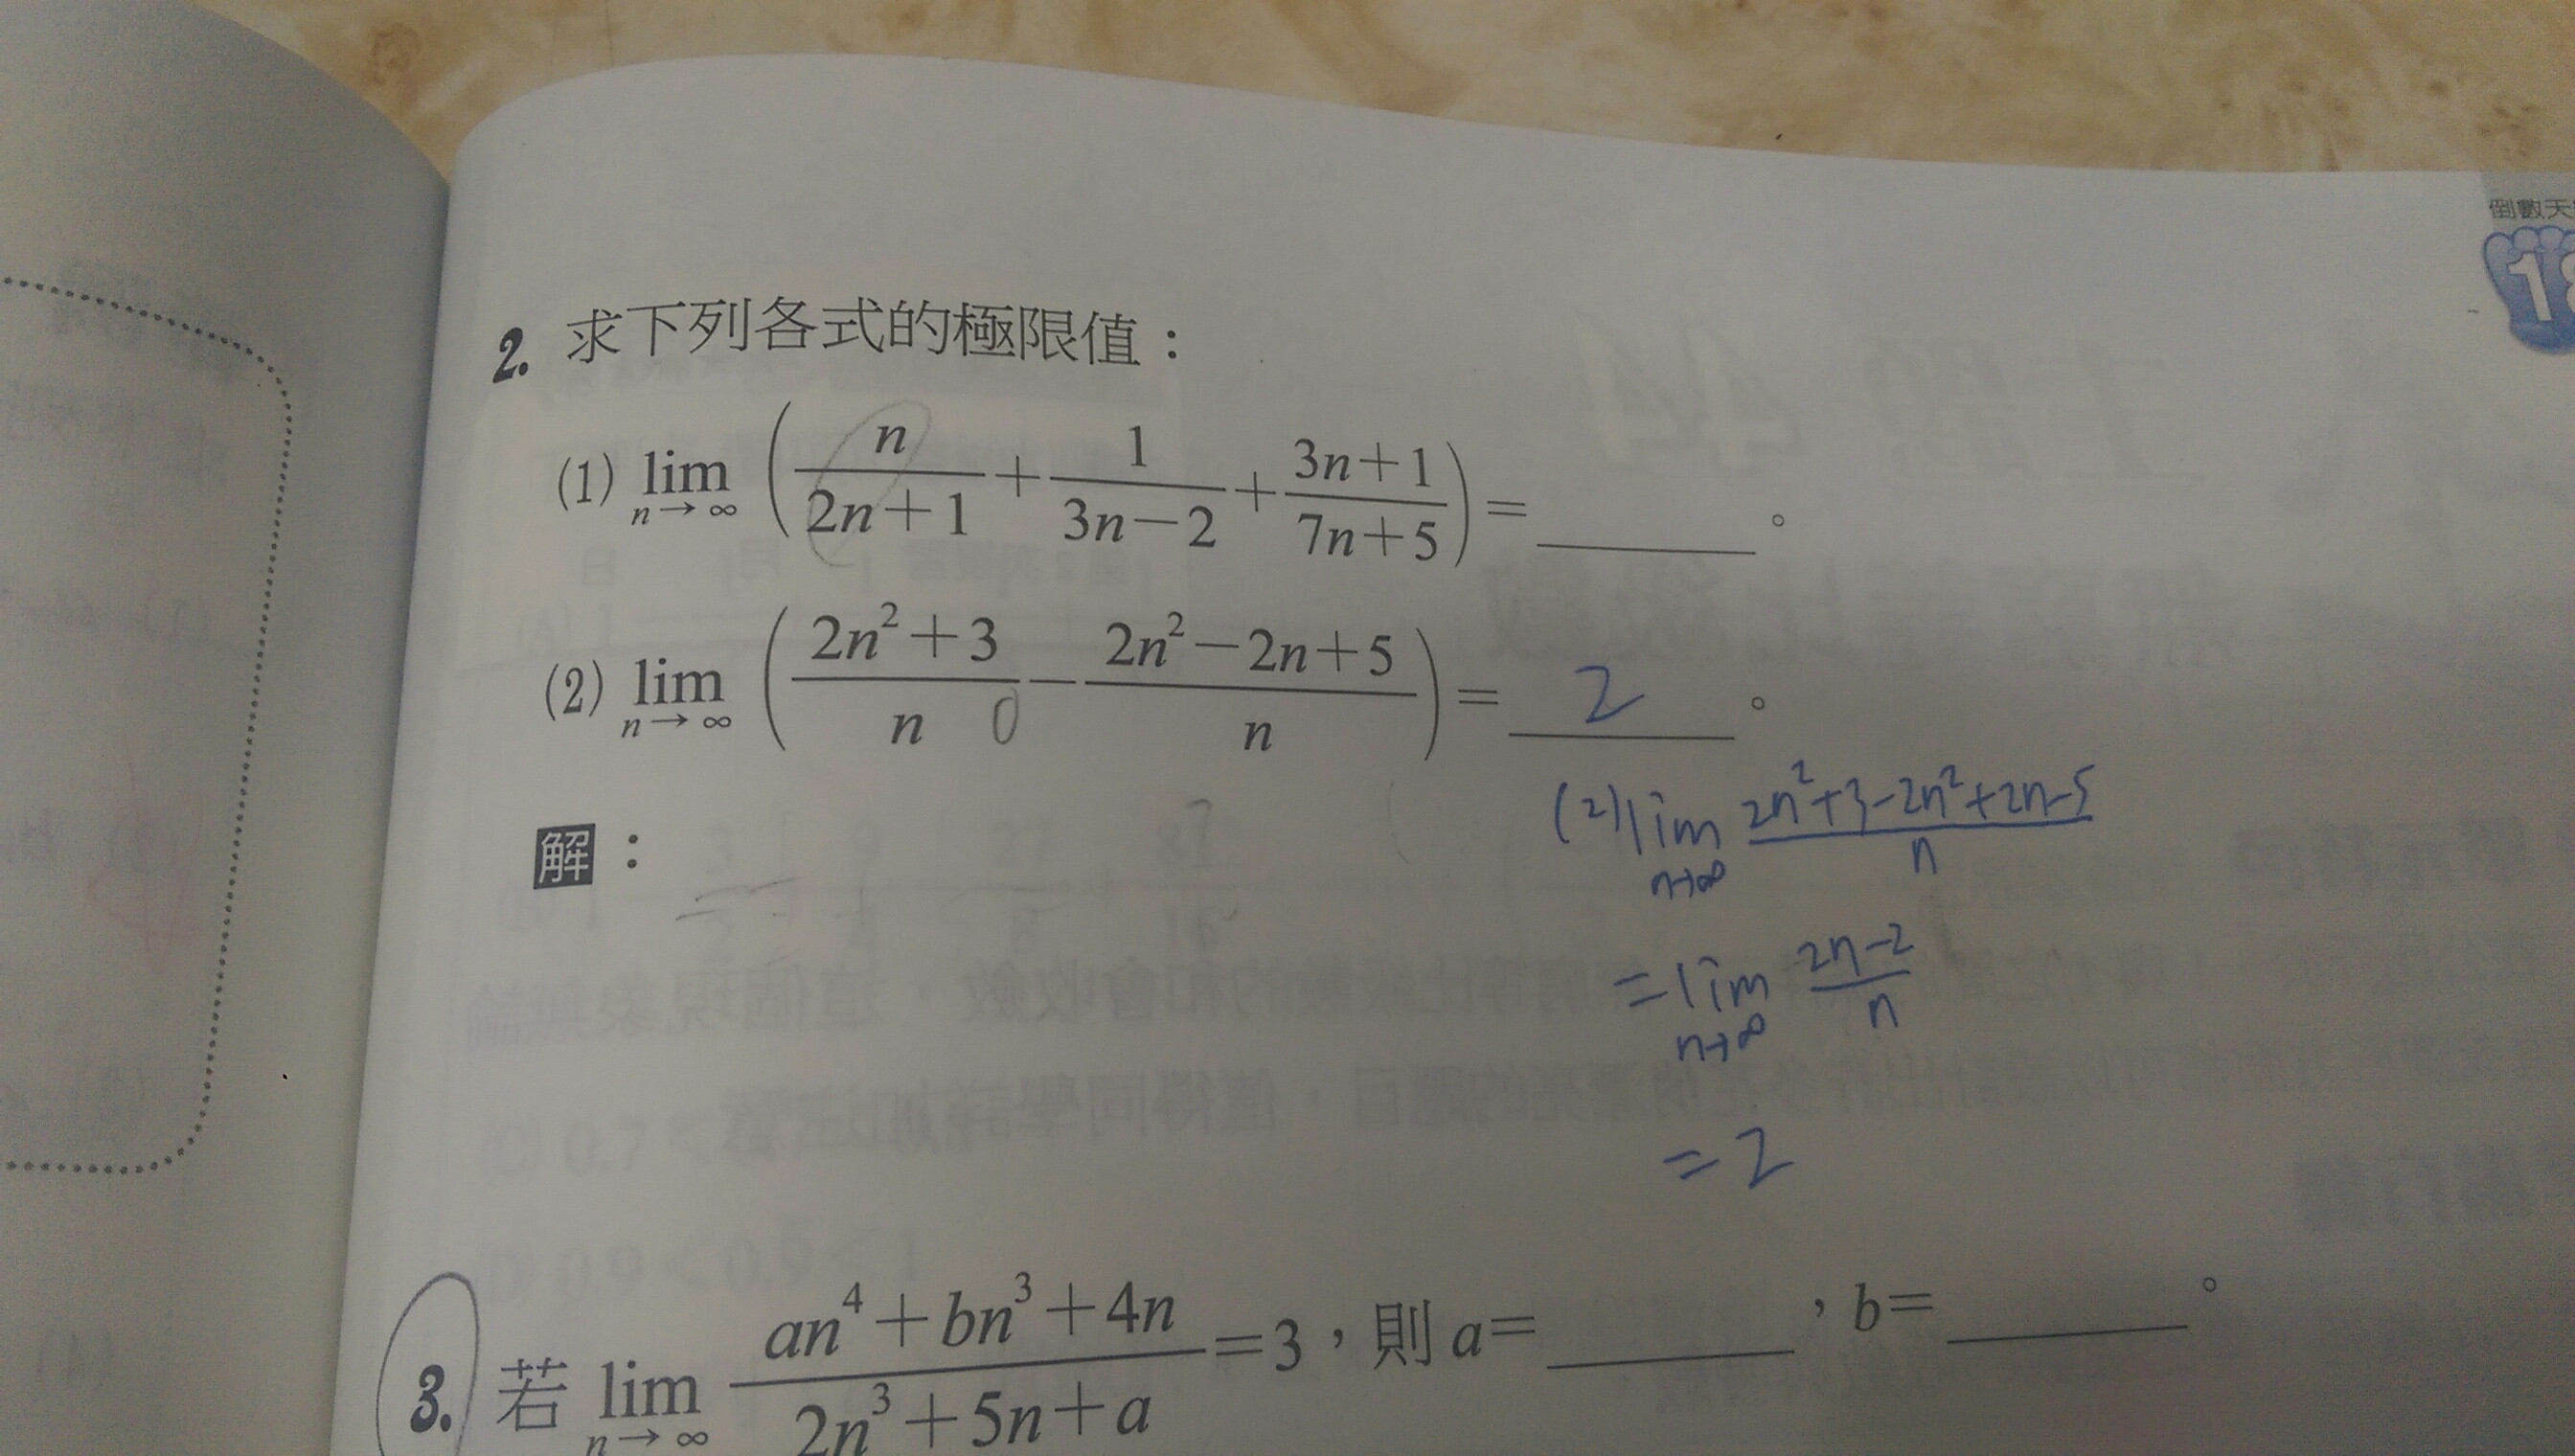 倒數天
2. 求下列各式的極限值：
(1) lim n→∞ ( n/(2n+1) + 1/(3n−2) + (3n+1)/(7n+5) ) = ______。
(2) lim n→∞ ( (2n²+3)/n − (2n²−2n+5)/n ) = 2。
0
解：
(2) lim n→∞ (2n²+3−2n²+2n−5)/n
= lim n→∞ (2n−2)/n
= 2
3. 若 lim n→∞ (an⁴+bn³+4n)/(2n³+5n+a) = 3，則 a= ______，b= ______。